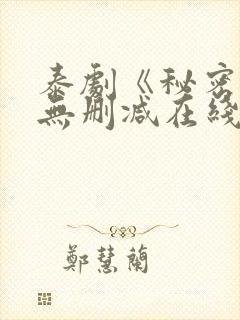 泰劇《秘密
無刪減在綫
鄭慧蘭